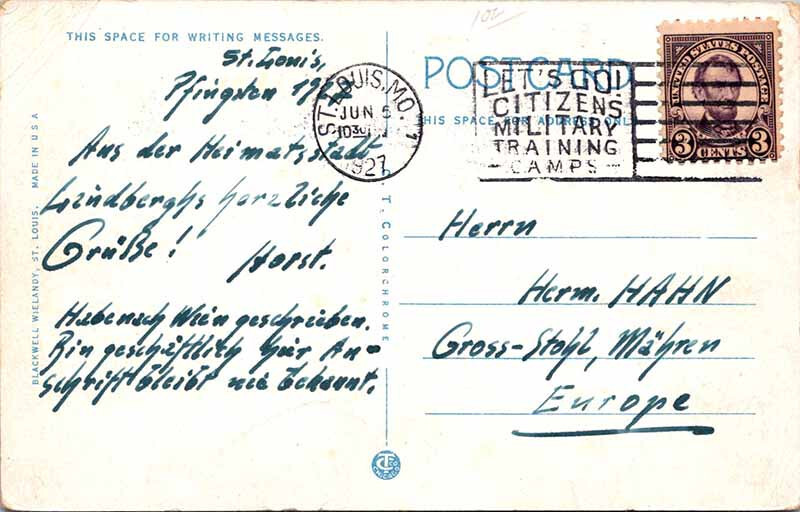 102
THIS SPACE FOR WRITING MESSAGES.
St. Louis,
Pfingsten 1927
Aus der Heimatsstadt
Lindberghs herzliche
Grüße!
Horst.
Habe nach Wien geschrieben.
Bin geschäftlich hier An-
schrift bleibt wie bekannt.
BLACKWELL WIELANDY, ST. LOUIS. MADE IN U S A
C. T. COLORCHROME
CHICAGO
POST CARD
THIS SPACE FOR ADDRESS ONLY
ST. LOUIS, MO. 1
JUN 5
1030
1927
LET'S GO!
CITIZENS
MILITARY
TRAINING
CAMPS
UNITED STATES POSTAGE
3 CENTS 3
Herrn
Herm. HAHN
Gross-Stohl, Mähren
Europe